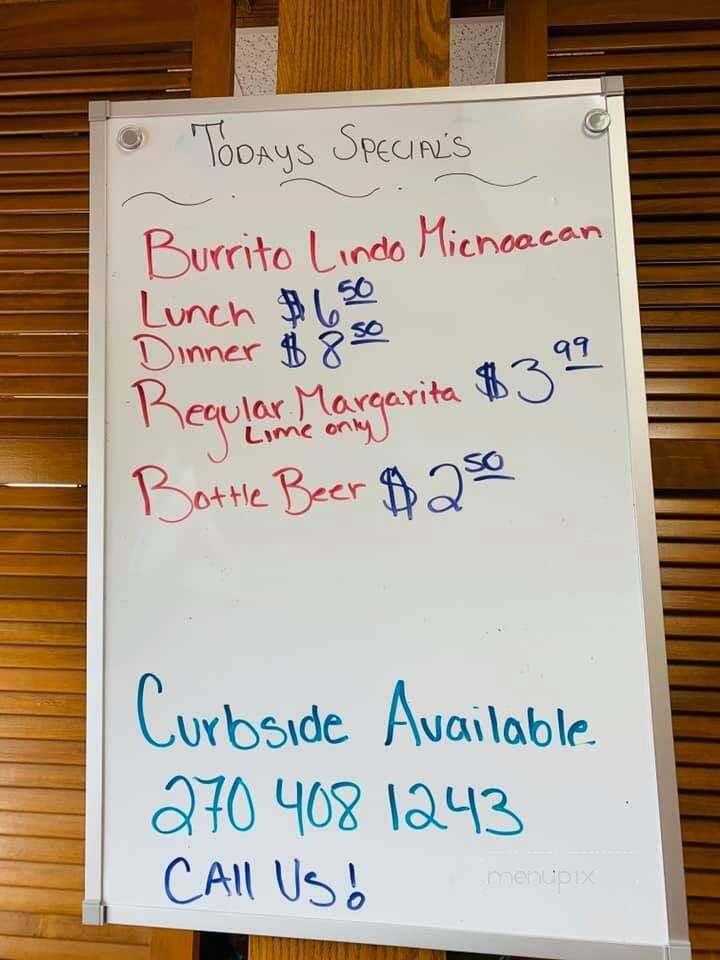 TODAYS SPECIAL'S
Burrito Lindo Michoacan
Lunch $6 50
Dinner $8 50
Regular Margarita $3 99
Lime only
Bottle Beer $2 50
Curbside Available
270 408 1243
CAll Us!
menupix